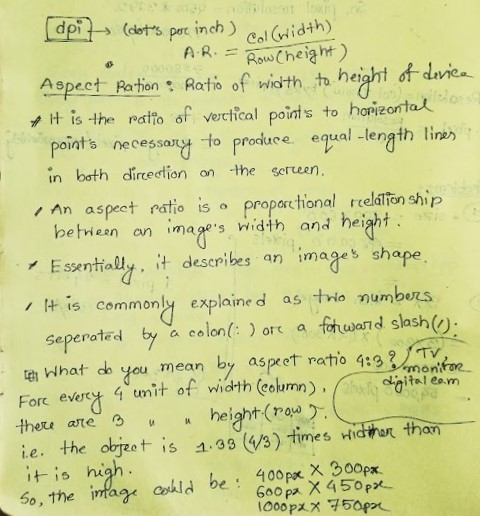 dpi → (dot's por inch)
A.R. = Col(width) / Row(height)
Aspect Ration : Ratio of width to height of device
* It is the ratio of vertical points to horizontal
point's necessary to produce equal-length lines
in both direction on the screen.
* An aspect ratio is a proportional relationship
between an image's width and height.
* Essentially, it describes an image's shape.
* It is commonly explained as two numbers
seperated by a colon(:) or a forward slash(/).
What do you mean by aspect ratio 4:3?
TV,
monitor
digital cam
For every 4 unit of width (column),
there are 3 " " height (row).
i.e. the object is 1.33 (4/3) times widther than
it is high.
So, the image could be : 400px X 300px
600px X 450px
1000px X 750px